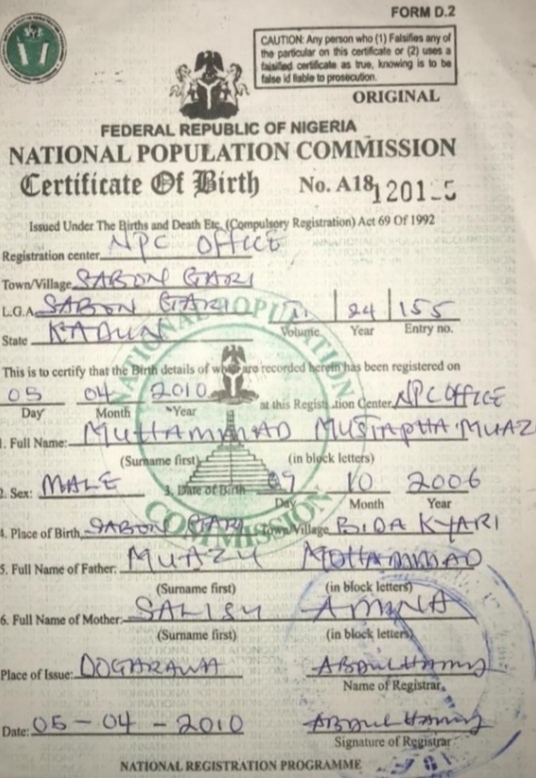 FORM D.2
CAUTION: Any person who (1) Falsifies any of
the particular on this certificate or (2) uses a
falsified certificate as true, knowing is to be
false id fiable to prosecution.
ORIGINAL
FEDERAL REPUBLIC OF NIGERIA
NATIONAL POPULATION COMMISSION
Certificate Of Birth No. A18
Issued Under The Births and Death Etc. (Compulsory Registration) Act 69 Of 1992
Registration center NPC OFFICE
Town/Village SABON GARI
L.G.A SABON GARI 24 155
Volume Year Entry no.
State KADUN
This is to certify that the Birth details of are recorded herein has been registered on
05 04 2010 at this Center NPC OFFICE
Day Month Year
1. Full Name: MUHAMMAD MUSTAPHA MUAZ
(Surname first) (in block letters)
2. Sex: MALE 3. Date of Birth 09 10 2006
Day Month Year
4. Place of Birth SABON GARI Town/Village BIDA KYARI
5. Full Name of Father: MUAZU MOHAMMAD
(Surname first) (in block letters)
6. Full Name of Mother: SALISU AMINA
(Surname first) (in block letters)
Place of Issue: DOGARAWA
Name of Registrar
Date: 05-04-2010
Signature of Registrar
NATIONAL REGISTRATION PROGRAMME
NATIONAL POPULATION
COMMISSION